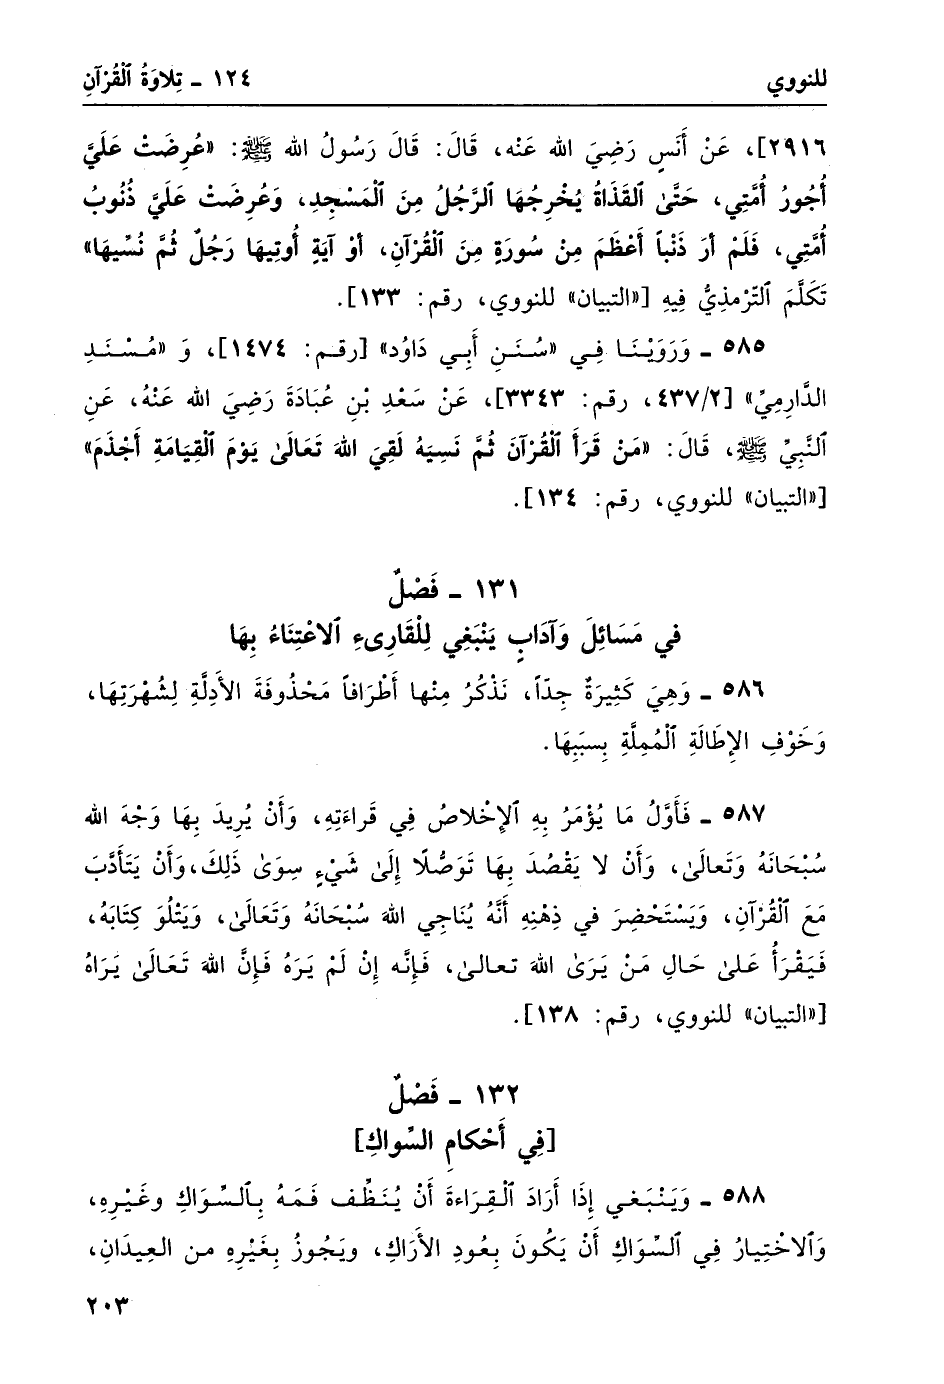 للنووي ١٢٤ ـ تِلاوَةُ ٱلْقُرْآنِ
٢٩١٦]، عَنْ أَنَسٍ رَضِيَ الله عَنْه، قَالَ: قَالَ رَسُولُ الله ﷺ: «عُرِضَتْ عَلَيَّ
أُجُورُ أُمَّتِي، حَتَّىٰ ٱلقَذَاةُ يُخْرِجُهَا ٱلرَّجُلُ مِنَ ٱلْمَسْجِدِ، وَعُرِضَتْ عَلَيَّ ذُنُوبُ
أُمَّتِي، فَلَمْ أرَ ذَنْباً أَعْظَمَ مِنْ سُورَةٍ مِنَ ٱلْقُرْآنِ، أوْ آيَةٍ أُوتِيهَا رَجُلٌ ثُمَّ نُسِّيهَا»
تَكَلَّمَ ٱلتّرْمذِيُّ فِيهِ [«التبيان» للنووي، رقم: ١٣٣].
٥٨٥ ـ وَرَوَيْنَـا فِـي «سُـنَـنِ أَبِـي دَاوُد» [رقـم: ١٤٧٤]، وَ «مُـسْـنَـدِ
الدَّارِمِيِّ» [٤٣٧/٢، رقم: ٣٣٤٣]، عَنْ سَعْدِ بْنِ عُبَادَةَ رَضِيَ الله عَنْهُ، عَنِ
ٱلنَّبِيِّ ﷺ، قَالَ: «مَنْ قَرَأَ ٱلْقُرْآنَ ثُمَّ نَسِيَهُ لَقِيَ اللهَ تَعَالَىٰ يَوْمَ ٱلْقِيَامَةِ أَجْذَمَ»
[«التبيان» للنووي، رقم: ١٣٤].
١٣١ ـ فَصْلٌ
في مَسَائِلَ وَآدَابٍ يَنْبَغِي لِلْقَارِىءِ ٱلاعْتِنَاءُ بِهَا
٥٨٦ ـ وَهِيَ كَثِيرَةٌ جِدّاً، نَذْكُرُ مِنْها أَطْرَافاً مَحْذُوفَةَ الأَدِلَّةِ لِشُهْرَتِهَا،
وَخَوْفِ الإِطَالَةِ ٱلْمُمِلَّةِ بِسبَبِهَا.
٥٨٧ ـ فَأَوَّلُ مَا يُؤْمَرُ بِهِ ٱلإِخْلاصُ فِي قَراءَتِهِ، وَأَنْ يُرِيدَ بِهَا وَجْهَ الله
سُبْحَانَهُ وَتَعالَىٰ، وَأَنْ لا يَقْصُدَ بِهَا تَوَصُّلًا إِلَىٰ شَيْءٍ سِوَىٰ ذَلِكَ،وَأَنْ يَتَأَدَّبَ
مَعَ ٱلْقُرْآنِ، وَيَسْتَحْضِرَ في ذِهْنِهِ أَنَّهُ يُنَاجِي اللهَ سُبْحَانَهُ وَتَعَالَىٰ، وَيَتْلُوَ كِتَابَهُ،
فَيَقْرَأُ عَلىٰ حَالِ مَنْ يَرَىٰ اللهَ تعـالىٰ، فَإِنَّه إِنْ لَمْ يَرَهُ فَإِنَّ اللهَ تَعَالَىٰ يَرَاهُ
[«التبيان» للنووي، رقم: ١٣٨].
١٣٢ ـ فَصْلٌ
[فِي أَحْكامِ السِّواكِ]
٥٨٨ ـ وَيَنْبَـغي إِذَا أَرَادَ ٱلْقِرَاءةَ أَنْ يُنَظِّف فَمَهُ بِٱلسِّوَاكِ وغَيْرِهِ،
وَٱلاخْتِيارُ فِي ٱلسِّوَاكِ أَنْ يَكُونَ بِعُودِ الأَرَاكِ، ويَجُوزُ بِغَيْرِهِ من العِيدَانِ،
٢٠٣